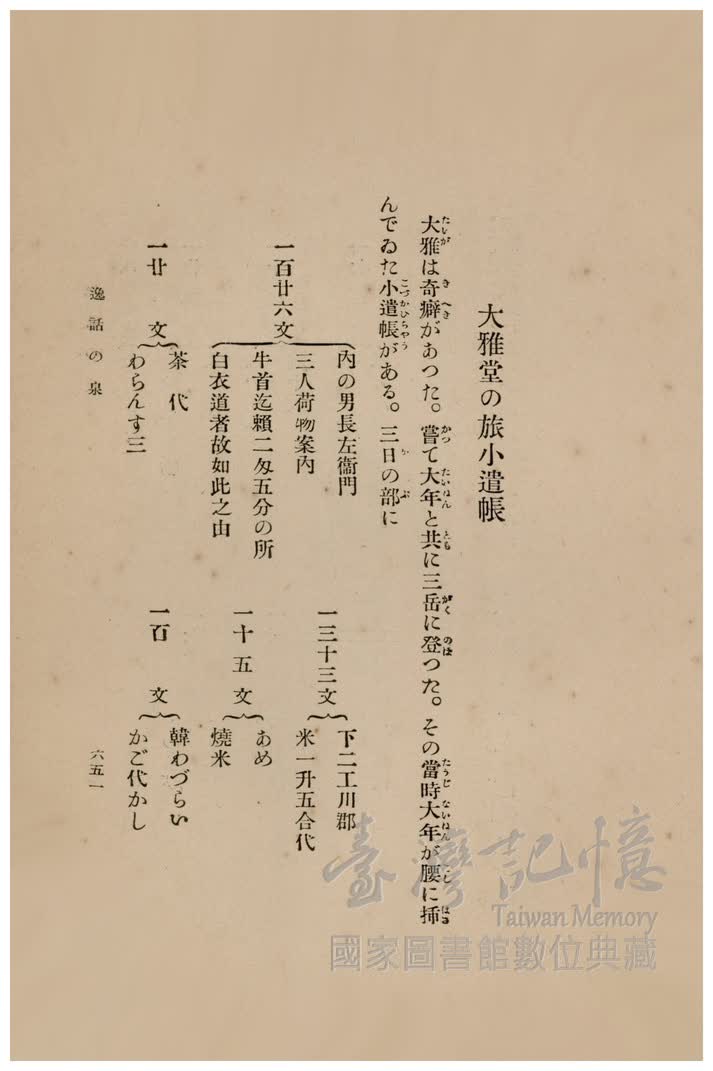 大雅堂の旅小遣帳
大雅は奇癖があつた。嘗て大年と共に三岳に登つた。その當時大年が腰に挿
んでゐた小遣帳がある。三日の部に
一百廿六文
內の男長左衞門
三人荷物案內
牛首迄賴二匁五分の所
白衣道者故如此之由
一三十三文
下二工川郡
米一升五合代
一十五文
あめ
燒米
一廿文
茶代
わらんす三
一百文
韓わづらい
かご代かし
逸話の泉
六五一
臺灣記憶
Taiwan Memory
國家圖書館數位典藏